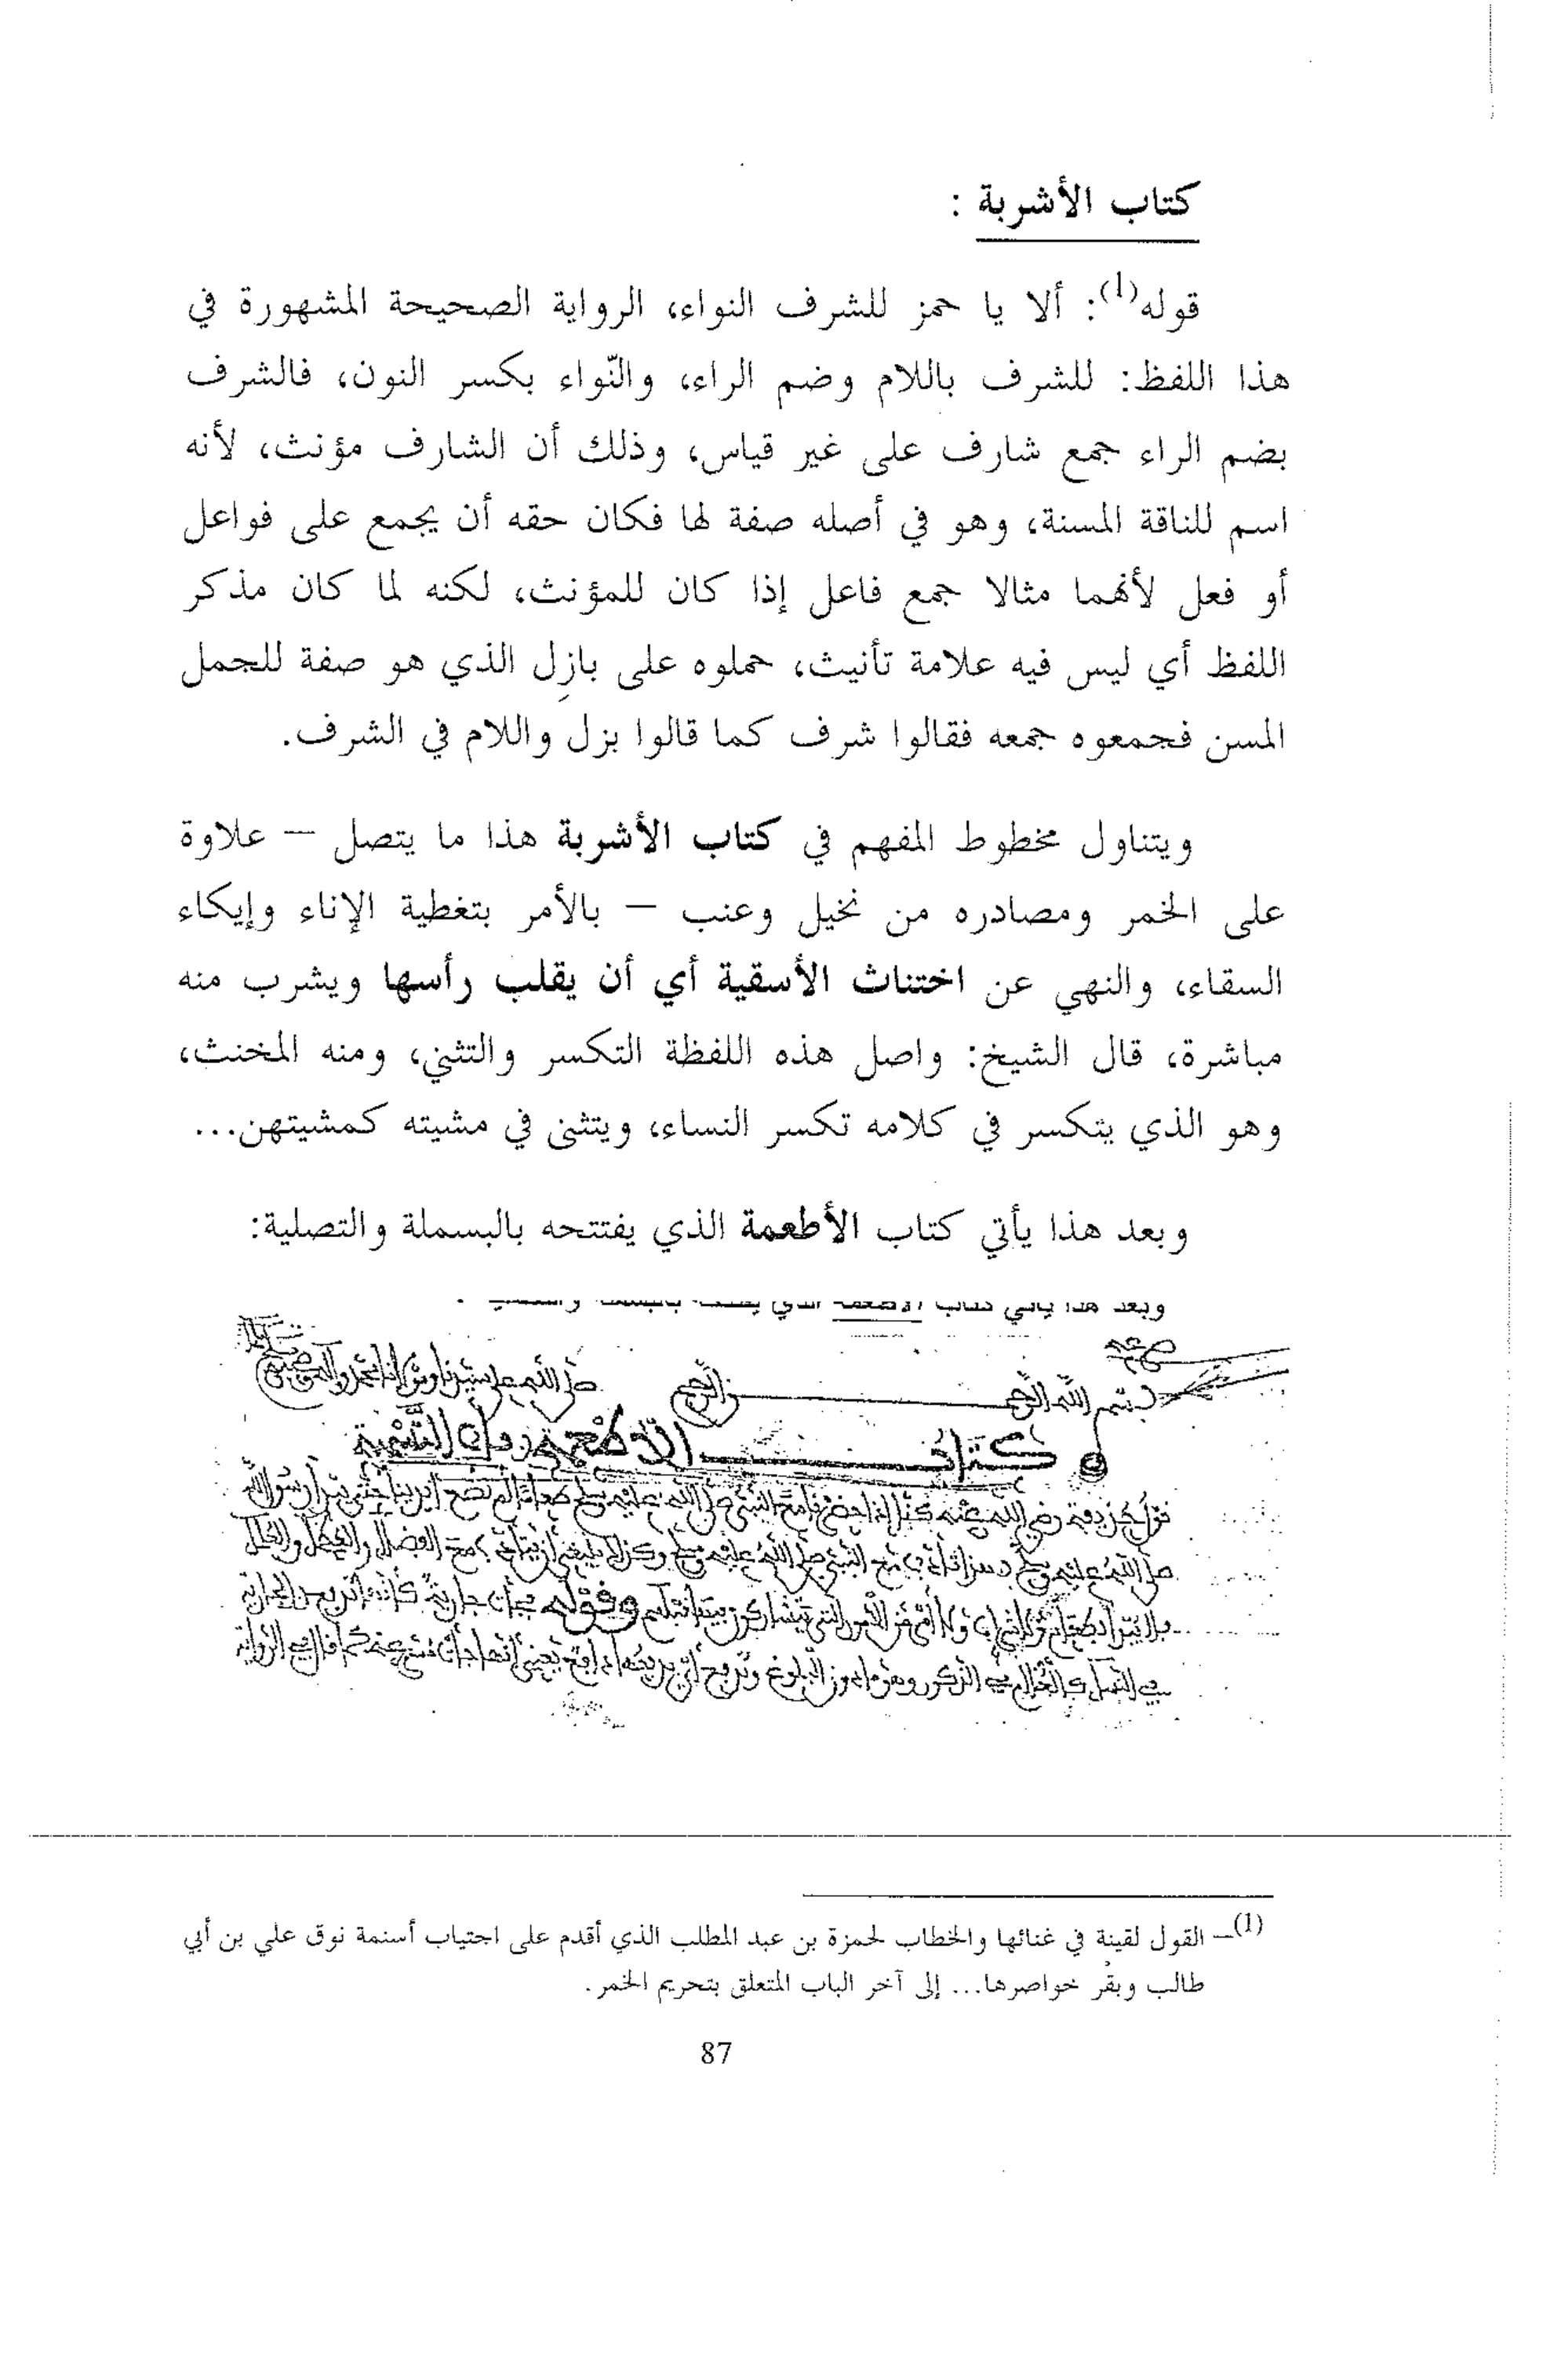 كتاب الأشربة :
قوله(1): ألا يا حمز للشرف النواء، الرواية الصحيحة المشهورة في
هذا اللفظ: للشرف باللام وضم الراء، والنّواء بكسر النون، فالشرف
بضم الراء جمع شارف على غير قياس، وذلك أن الشارف مؤنث، لأنه
اسم للناقة المسنة، وهو في أصله صفة لها فكان حقه أن يجمع على فواعل
أو فعل لأنهما مثالا جمع فاعل إذا كان للمؤنث، لكنه لما كان مذكر
اللفظ أي ليس فيه علامة تأنيث، حملوه على بازِل الذي هو صفة للجمل
المسن فجمعوه جمعه فقالوا شرف كما قالوا بزل واللام في الشرف.
ويتناول مخطوط المفهم في كتاب الأشربة هذا ما يتصل – علاوة
على الخمر ومصادره من نخيل وعنب – بالأمر بتغطية الإناء وإيكاء
السقاء، والنهي عن اختناث الأسقية أي أن يقلب رأسها ويشرب منه
مباشرة، قال الشيخ: واصل هذه اللفظة التكسر والتثني، ومنه المخنث،
وهو الذي يتكسر في كلامه تكسر النساء، ويتثنى في مشيته كمشيتهن...
وبعد هذا يأتي كتاب الأطعمة الذي يفتتحه بالبسملة والتصلية:
وبعد هذا يأتي كتاب الأطعمة الذي يفتتحه بالبسملة والتصلية :
بسم الله الرحمن الرحيم صلى الله على
كتاب الأطعمة
رضي الله عنه كنا إذا حضرنا مع النبي صلى الله عليه وسلم طعاما لم نضع أيدينا حتى يبدأ رسول الله
صلى الله عليه وسلم
(1)– القول لقينة في غنائها والخطاب لحمزة بن عبد المطلب الذي أقدم على اجتياب أسنمة نوق علي بن أبي
طالب وبقْر خواصرها... إلى آخر الباب المتعلق بتحريم الخمر.
87